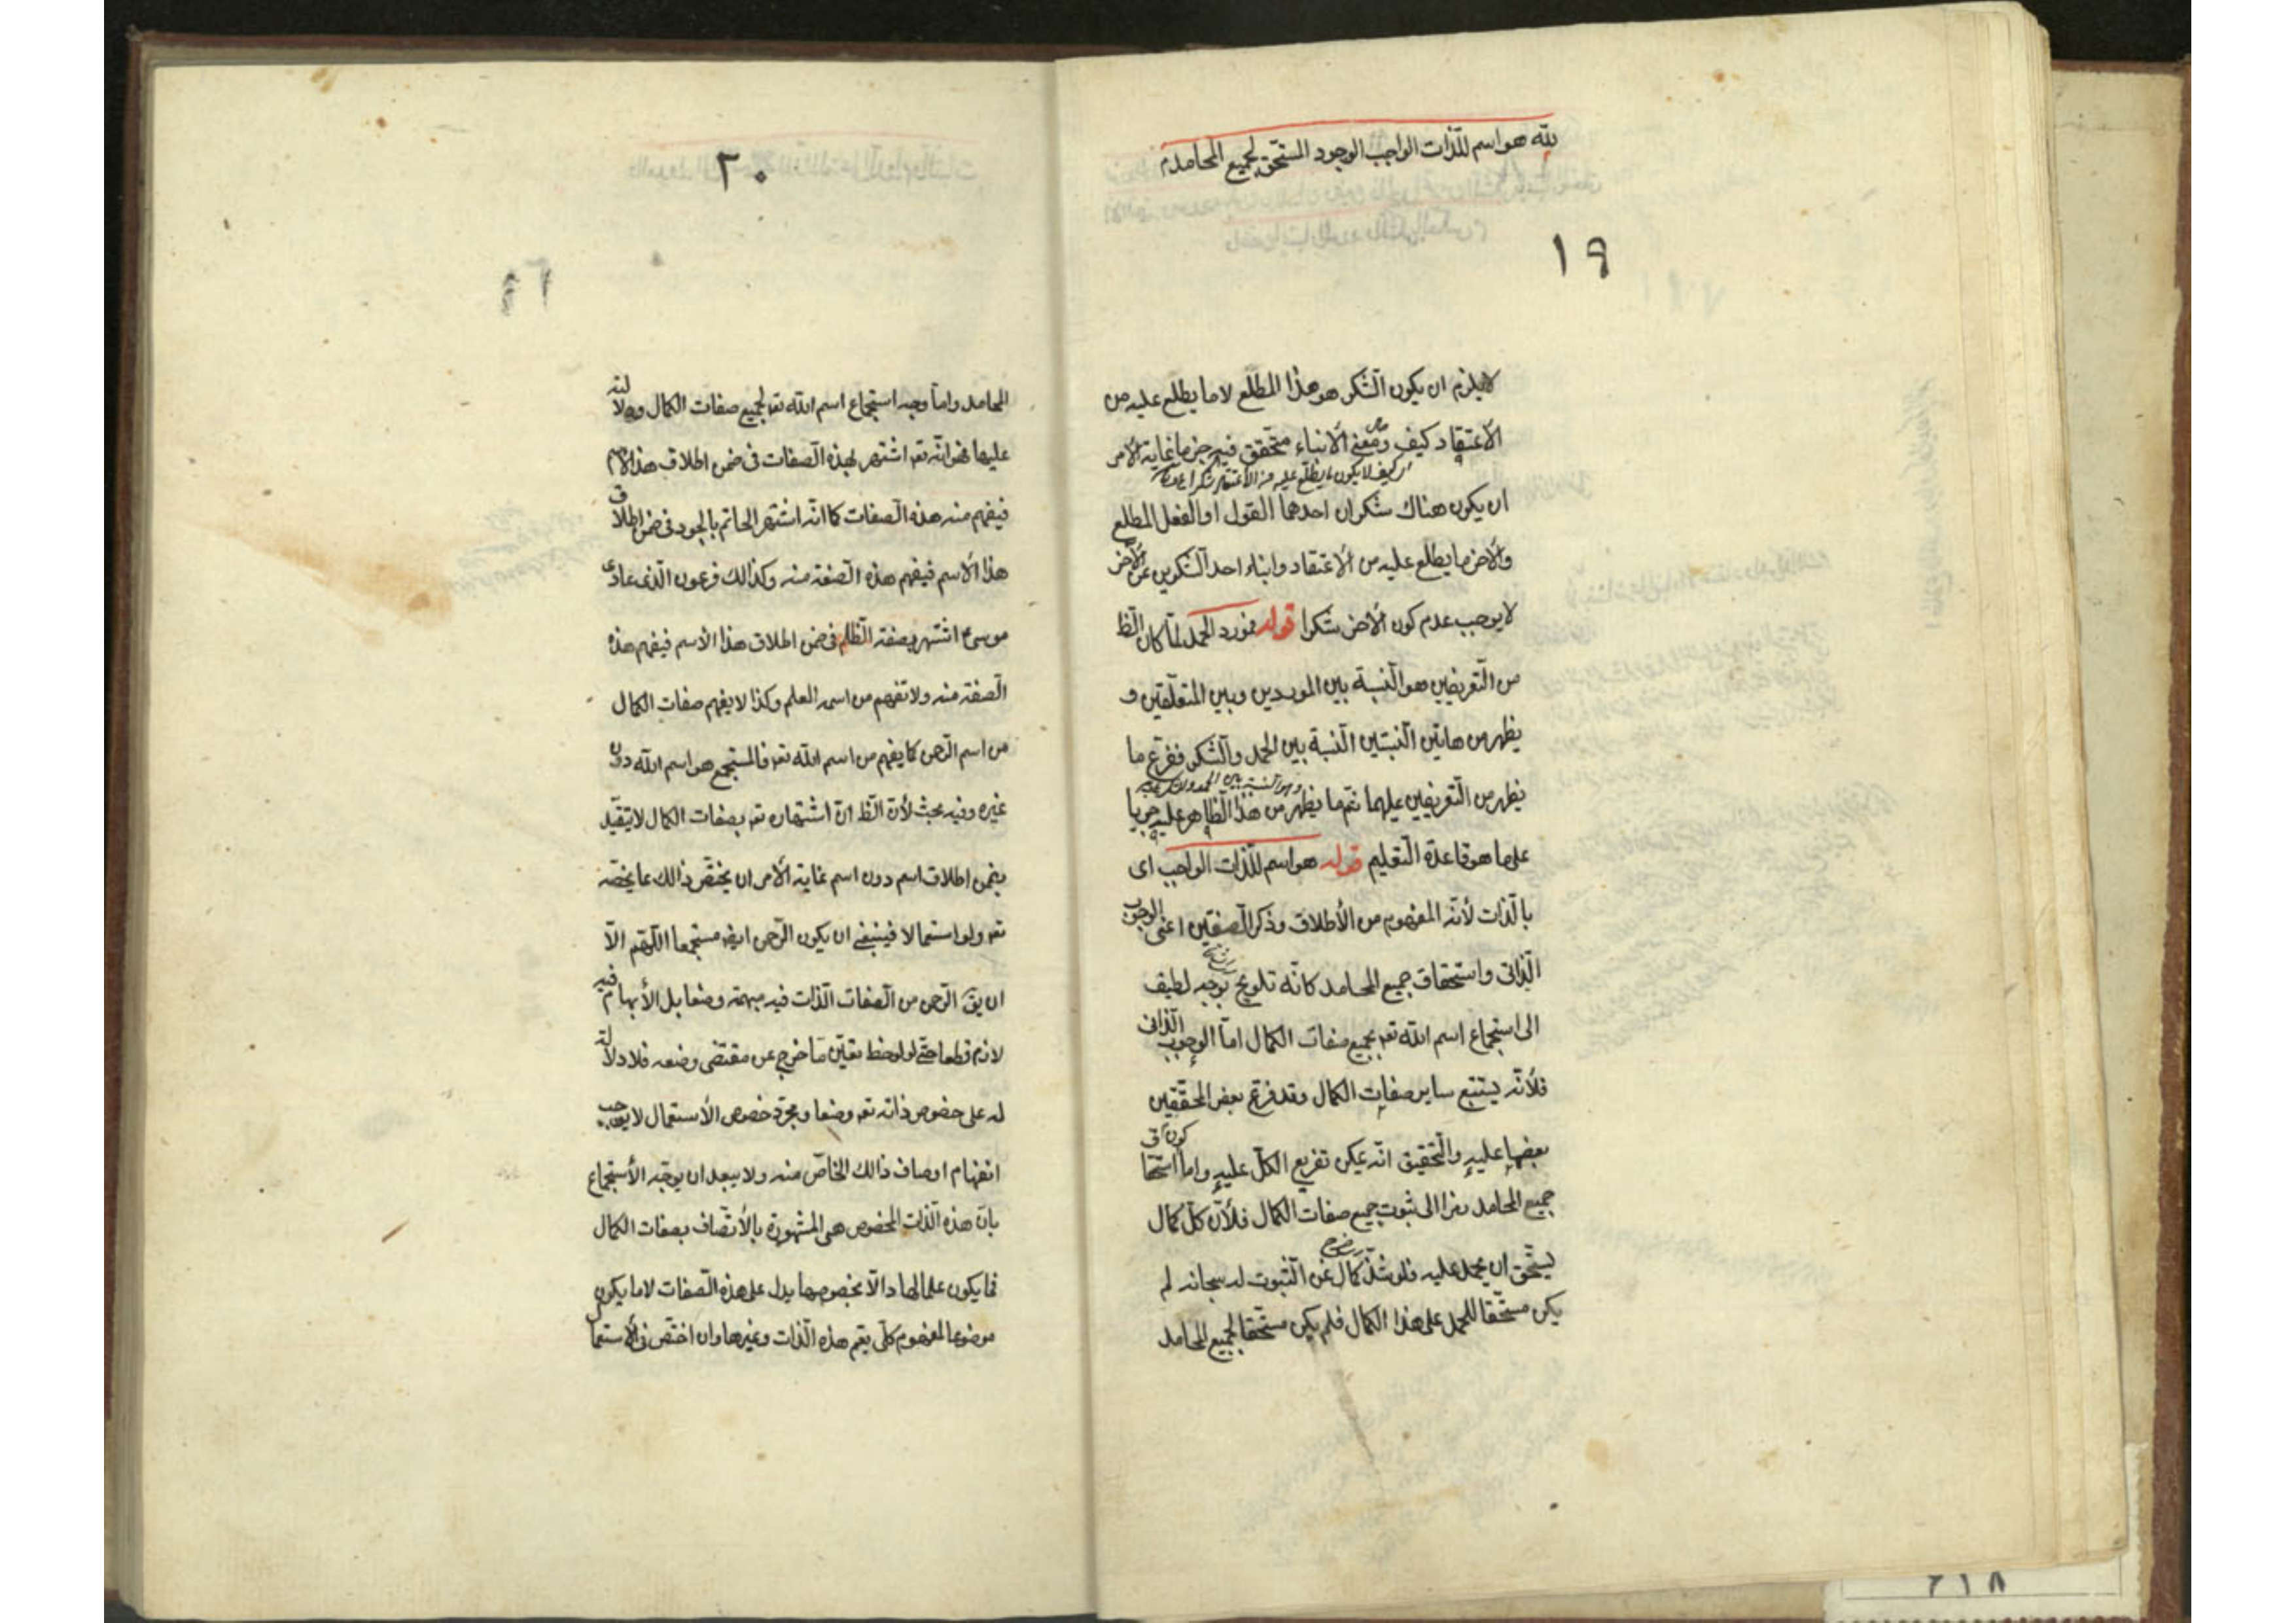 لله هو اسم للذات الواجب الوجود المستحق لجميع المحامد م
١٩
لا يلزم ان يكون الشكر هو هذا المطلع لا ما يطلع عليه من
الاعتقاد كيف ومعنى الانباء متحقق فيه جزما غاية الامر
اى كيف لا يكون ما يطلع عليه من الاعتقاد شكرا
ان يكون هناك شكران احدهما القول او الفعل المطلع
والاخر ما يطلع عليه من الاعتقاد وانباء احد الشكرين عن الاخر
لا يوجب عدم كون الاخر شكرا قوله فمورد الحمد لما كان الظ
من التعريفين هو النسبة بين الموردين وبين المتعلقين و
يظهر من هاتين النسبتين النسبة بين الحمد والشكر ففرع ما
وهو النسبة بين الحمد والشكر
يظهر من التعريفين عليهما ثم ما يظهر من هذا الظاهر عليه جريا
على ما هو قاعدة التعليم قوله هو اسم للذات الواجب اى
بالذات لأنه المفهوم من الأطلاق وذكر الصفتين اعنى الوجوب
الذاتى واستحقاق جميع المحامد كانه تلويح بوجه لطيف
الى استجماع اسم الله تعه بجميع صفات الكمال اما الوجوب الذاتى
فلأنه يستتبع ساير صفات الكمال وقد فرع بعض المحققين
بعضها عليه والتحقيق انه يمكن تفريع الكل عليه واما كون استحقاق
جميع المحامد رمزا الى ثبوت جميع صفات الكمال فلأن كل كمال
يستحق ان يحمد عليه فلو شذ كمال عن الثبوت له سبحانه لم
يكن مستحقا للحمد على هذا الكمال فلم يكن مستحقا لجميع المحامد
٢٠
المحامد واما وجه استجماع اسم الله تعه لجميع صفات الكمال ودلالته
عليها فهو انه تعه اشتهر بهذه الصفات فى ضمن اطلاق هذا الاسم
فيفهم منه هذه الصفات كما انه اشتهر الحاتم بالجود فى ضمن اطلاق
هذا الاسم فيفهم هذه الصفة منه وكذالك فرعون الذى عادى
موسى اشتهر بصفة الظلم فى ضمن اطلاق هذا الاسم فيفهم هذه
الصفة منه ولا تفهم من اسمه العلم وكذا لا يفهم صفات الكمال
من اسم الرحمن كما يفهم من اسم الله تعه فالمستجمع هو اسم الله دون
غيره وفيه بحث لأن الظ ان اشتهاره تعه بصفات الكمال لا يتقيد
بضمن اطلاق اسم دون اسم غاية الأمر ان يختص ذالك بما يخصه
تعه ولو استعمالا فينبغى ان يكون الرحمن ايضا مستجمعا اللهم الا
ان يق الرحمن من الصفات الذات فيه مبهمة وضعا بل الأبهام فيه
لازم قطعا حتى لو لوحظ تعين ما خرج عن مقتضى وضعه فلا دلالة
له على خصوص ذاته تعه وضعا ومجرد خصوص الأستعمال لا يوجب
انفهام اوصاف ذالك الخاص منه ولا يبعد ان يوجه الأستجماع
بان هذه الذات المخصوص هى المشهورة بالأتصاف بصفات الكمال
فما يكون علما لها دالا بخصوصها يدل على هذه الصفات لا ما يكون
موضوعا لمفهوم كلى يعم هذه الذات وغيرها وان اختص فى الاستعمال